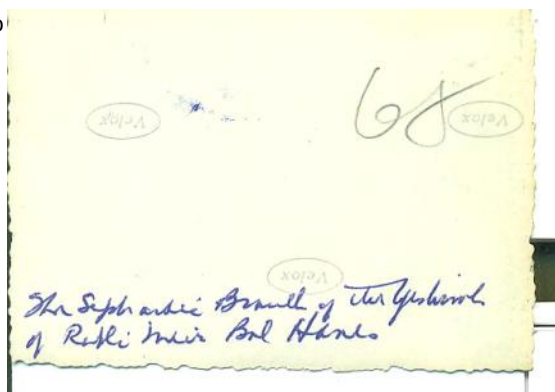 Velox
68
Velox
Velox
The Sephardic Branch of the Yeshivah
of Rabbi Meir Bal Hanes